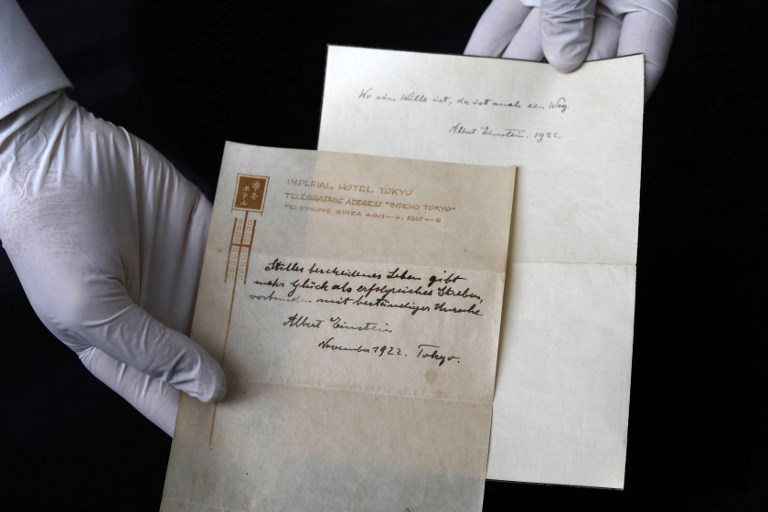 Wo ein Wille ist, da ist auch ein Weg.
Albert Einstein. 1922
帝国
ホテル
IMPERIAL HOTEL TOKYO
TELEGRAPHIC ADDRESS "IMPEHO TOKYO"
TELEPHONE GINZA
Stilles bescheidenes Leben gibt
mehr Glück als erfolgreiches Streben,
verbunden mit beständiger Unruhe.
Albert Einstein
November 1922. Tokyo.